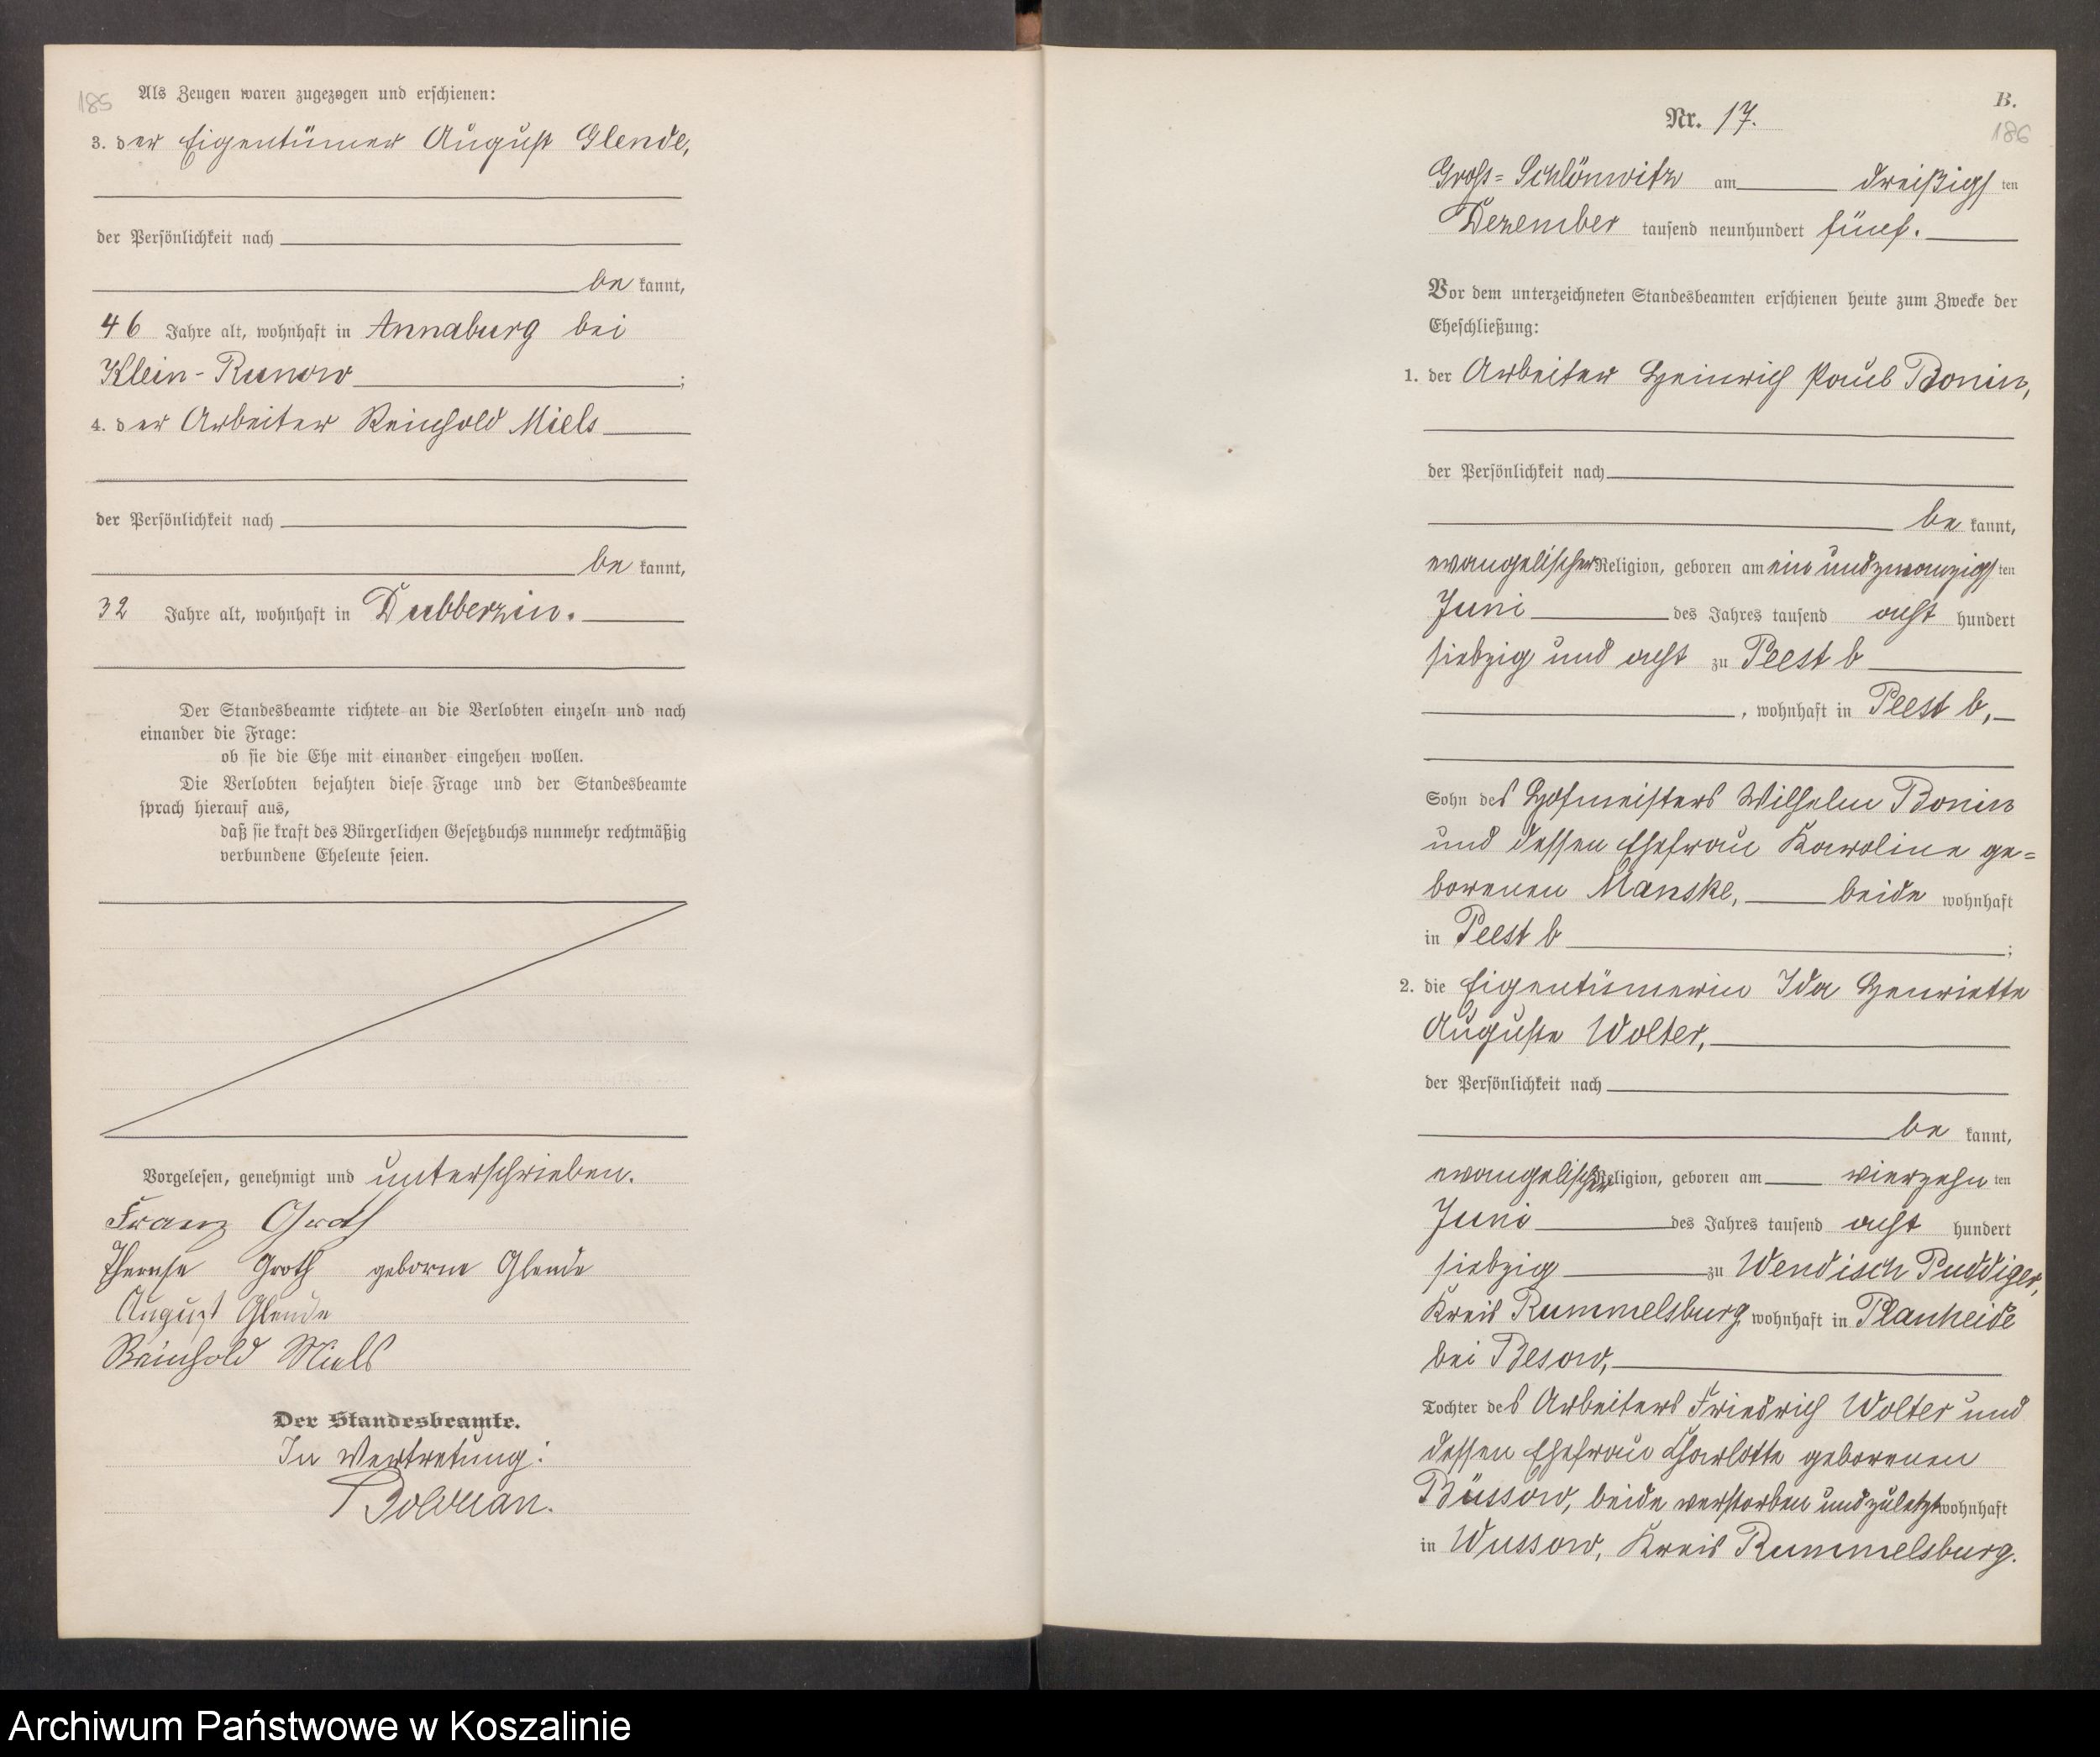 185
Als Zeugen waren zugezogen und erschienen:
3. der Eigentümer August Glende,
der Persönlichkeit nach
be kannt,
46 Jahre alt, wohnhaft in Annaburg bei
Klein-Runow ;
4. der Arbeiter Reinhold Miels
der Persönlichkeit nach
be kannt,
32 Jahre alt, wohnhaft in Dubberzin.
Der Standesbeamte richtete an die Verlobten einzeln und nach
einander die Frage:
ob sie die Ehe mit einander eingehen wollen.
Die Verlobten bejahten diese Frage und der Standesbeamte
sprach hierauf aus,
daß sie kraft des Bürgerlichen Gesetzbuchs nunmehr rechtmäßig
verbundene Eheleute seien.
Vorgelesen, genehmigt und unterschrieben.
Franz Groth
Therese Groth geborne Glende
August Glende
Reinhold Miels
Der Standesbeamte.
In Vertretung:
B.
Nr. 17.
186
Gross-Schlönwitz am dreißigs ten
Dezember tausend neunhundert fünf.
Vor dem unterzeichneten Standesbeamten erschienen heute zum Zwecke der
Eheschließung:
1. der Arbeiter Heinrich Paul Bonin,
der Persönlichkeit nach
be kannt,
evangelischer Religion, geboren am ein und zwanzigs ten
Juni des Jahres tausend acht hundert
siebzig und acht zu Peest b
, wohnhaft in Peest b,
Sohn des Hofmeisters Wilhelm Bonin
und dessen Ehefrau Karoline ge=
borenen Manske, beide wohnhaft
in Peest b ;
2. die Eigentümerin Ida Henriette
Auguste Wolter,
der Persönlichkeit nach
be kannt,
evangelischer Religion, geboren am vierzehn ten
Juni des Jahres tausend acht hundert
siebzig zu Wendisch Puddiger,
Kreis Rummelsburg, wohnhaft in Planheide
bei Besow,
Tochter des Arbeiters Friedrich Wolter und
dessen Ehefrau Charlotte geborenen
Büssow, beide verstorben und zuletzt wohnhaft
in Wussow, Kreis Rummelsburg.
Archiwum Państwowe w Koszalinie